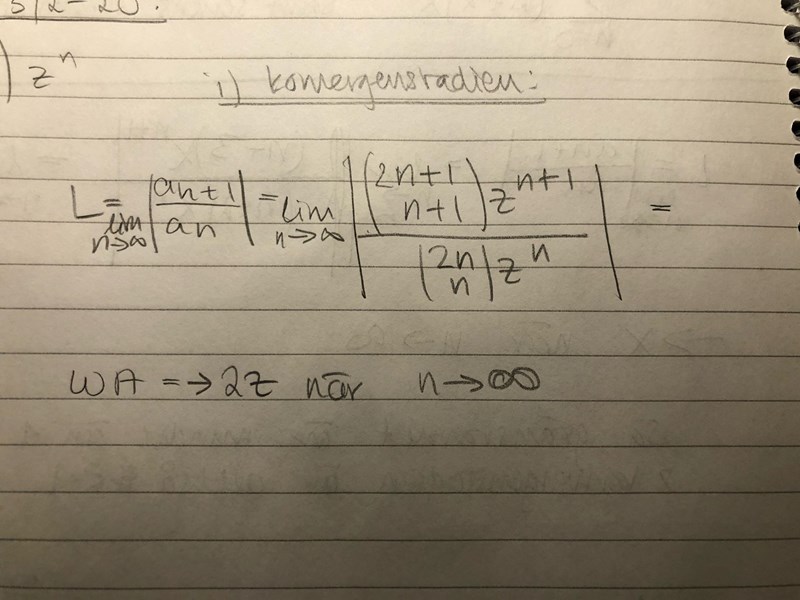 ) zⁿ
i) konvergensradien:
L = lim n→∞ |an+1 / an| = lim n→∞ |(2n+1 n+1) zⁿ⁺¹ / (2n n) zⁿ| =
WA = → 2z när n→∞